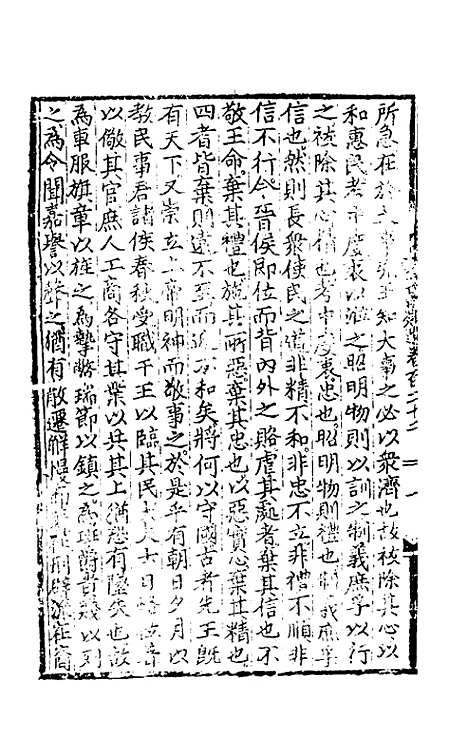 所急在於大事先王知大事之必以衆濟也故祓除其心以
和惠民考中度衷以涖之昭明物則以訓之制義庶孚以行
之祓除其心精也考中度衷忠也昭明物則禮也制義庶孚
信也然則長衆使民之道非精不和非忠不立非禮不順非
信不行今晉侯即位而背內外之賂虐其處者棄其信也不
敬王命棄其禮也施其所惡棄其忠也以惡實心棄其精也
四者皆棄則遠不至而近不和矣將何以守國古者先王旣
有天下又崇立上帝明神而敬事之於是乎有朝日夕月以
教民事君諸侯春秋受職于王以臨其民大夫士日恪位著
以儆其官庶人工商各守其業以共其上猶恐有墜失也故
爲車服旗章以旌之爲摯幣瑞節以鎮之爲班爵貴賤以列
之爲令聞嘉譽以聲之猶有散遷解慢而刑辟流在裔
卷百二十二